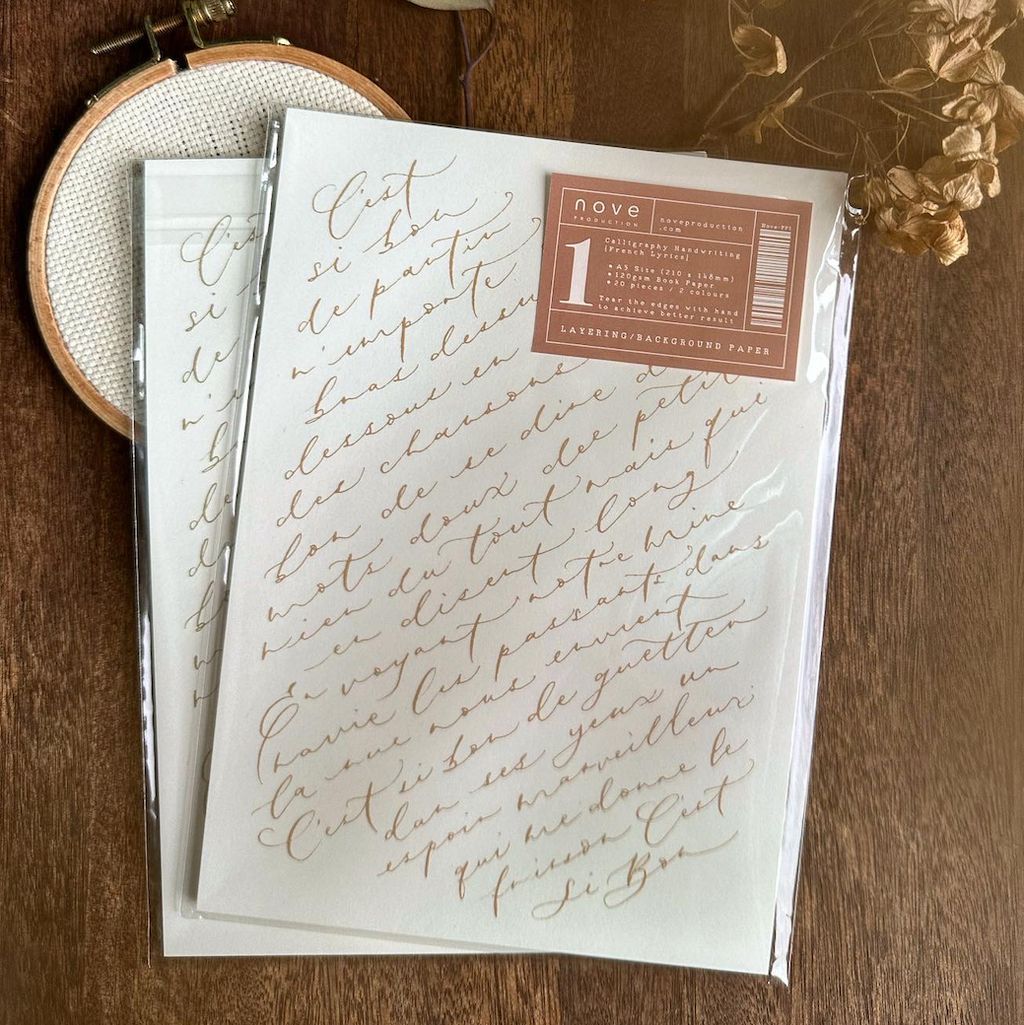 C'est
si bon
de partir
n'importe
bras dessu
dessous en
des chansons
bon de se dire d
mots doux dee petit
rien du tout mais qui
en disent long
En voyant notre mine
ravie les passants dans
la rue nous envient
C'est si bon de guetter
dans ses yeux un
espoir marveilleux
qui me donne le
frisson C'est
Si Bon
nove
PRODUCTION
noveproduction
.com
Nove-PP1
1
Calligraphy Handwriting
[French Lyrics]
• A5 Size (210 x 148mm)
• 120gsm Book Paper
• 20 pieces / 2 colours
Tear the edges with hand
to achieve better result
LAYERING/BACKGROUND PAPER
C'est
si
de
n'i
b
de
d
b
m
r